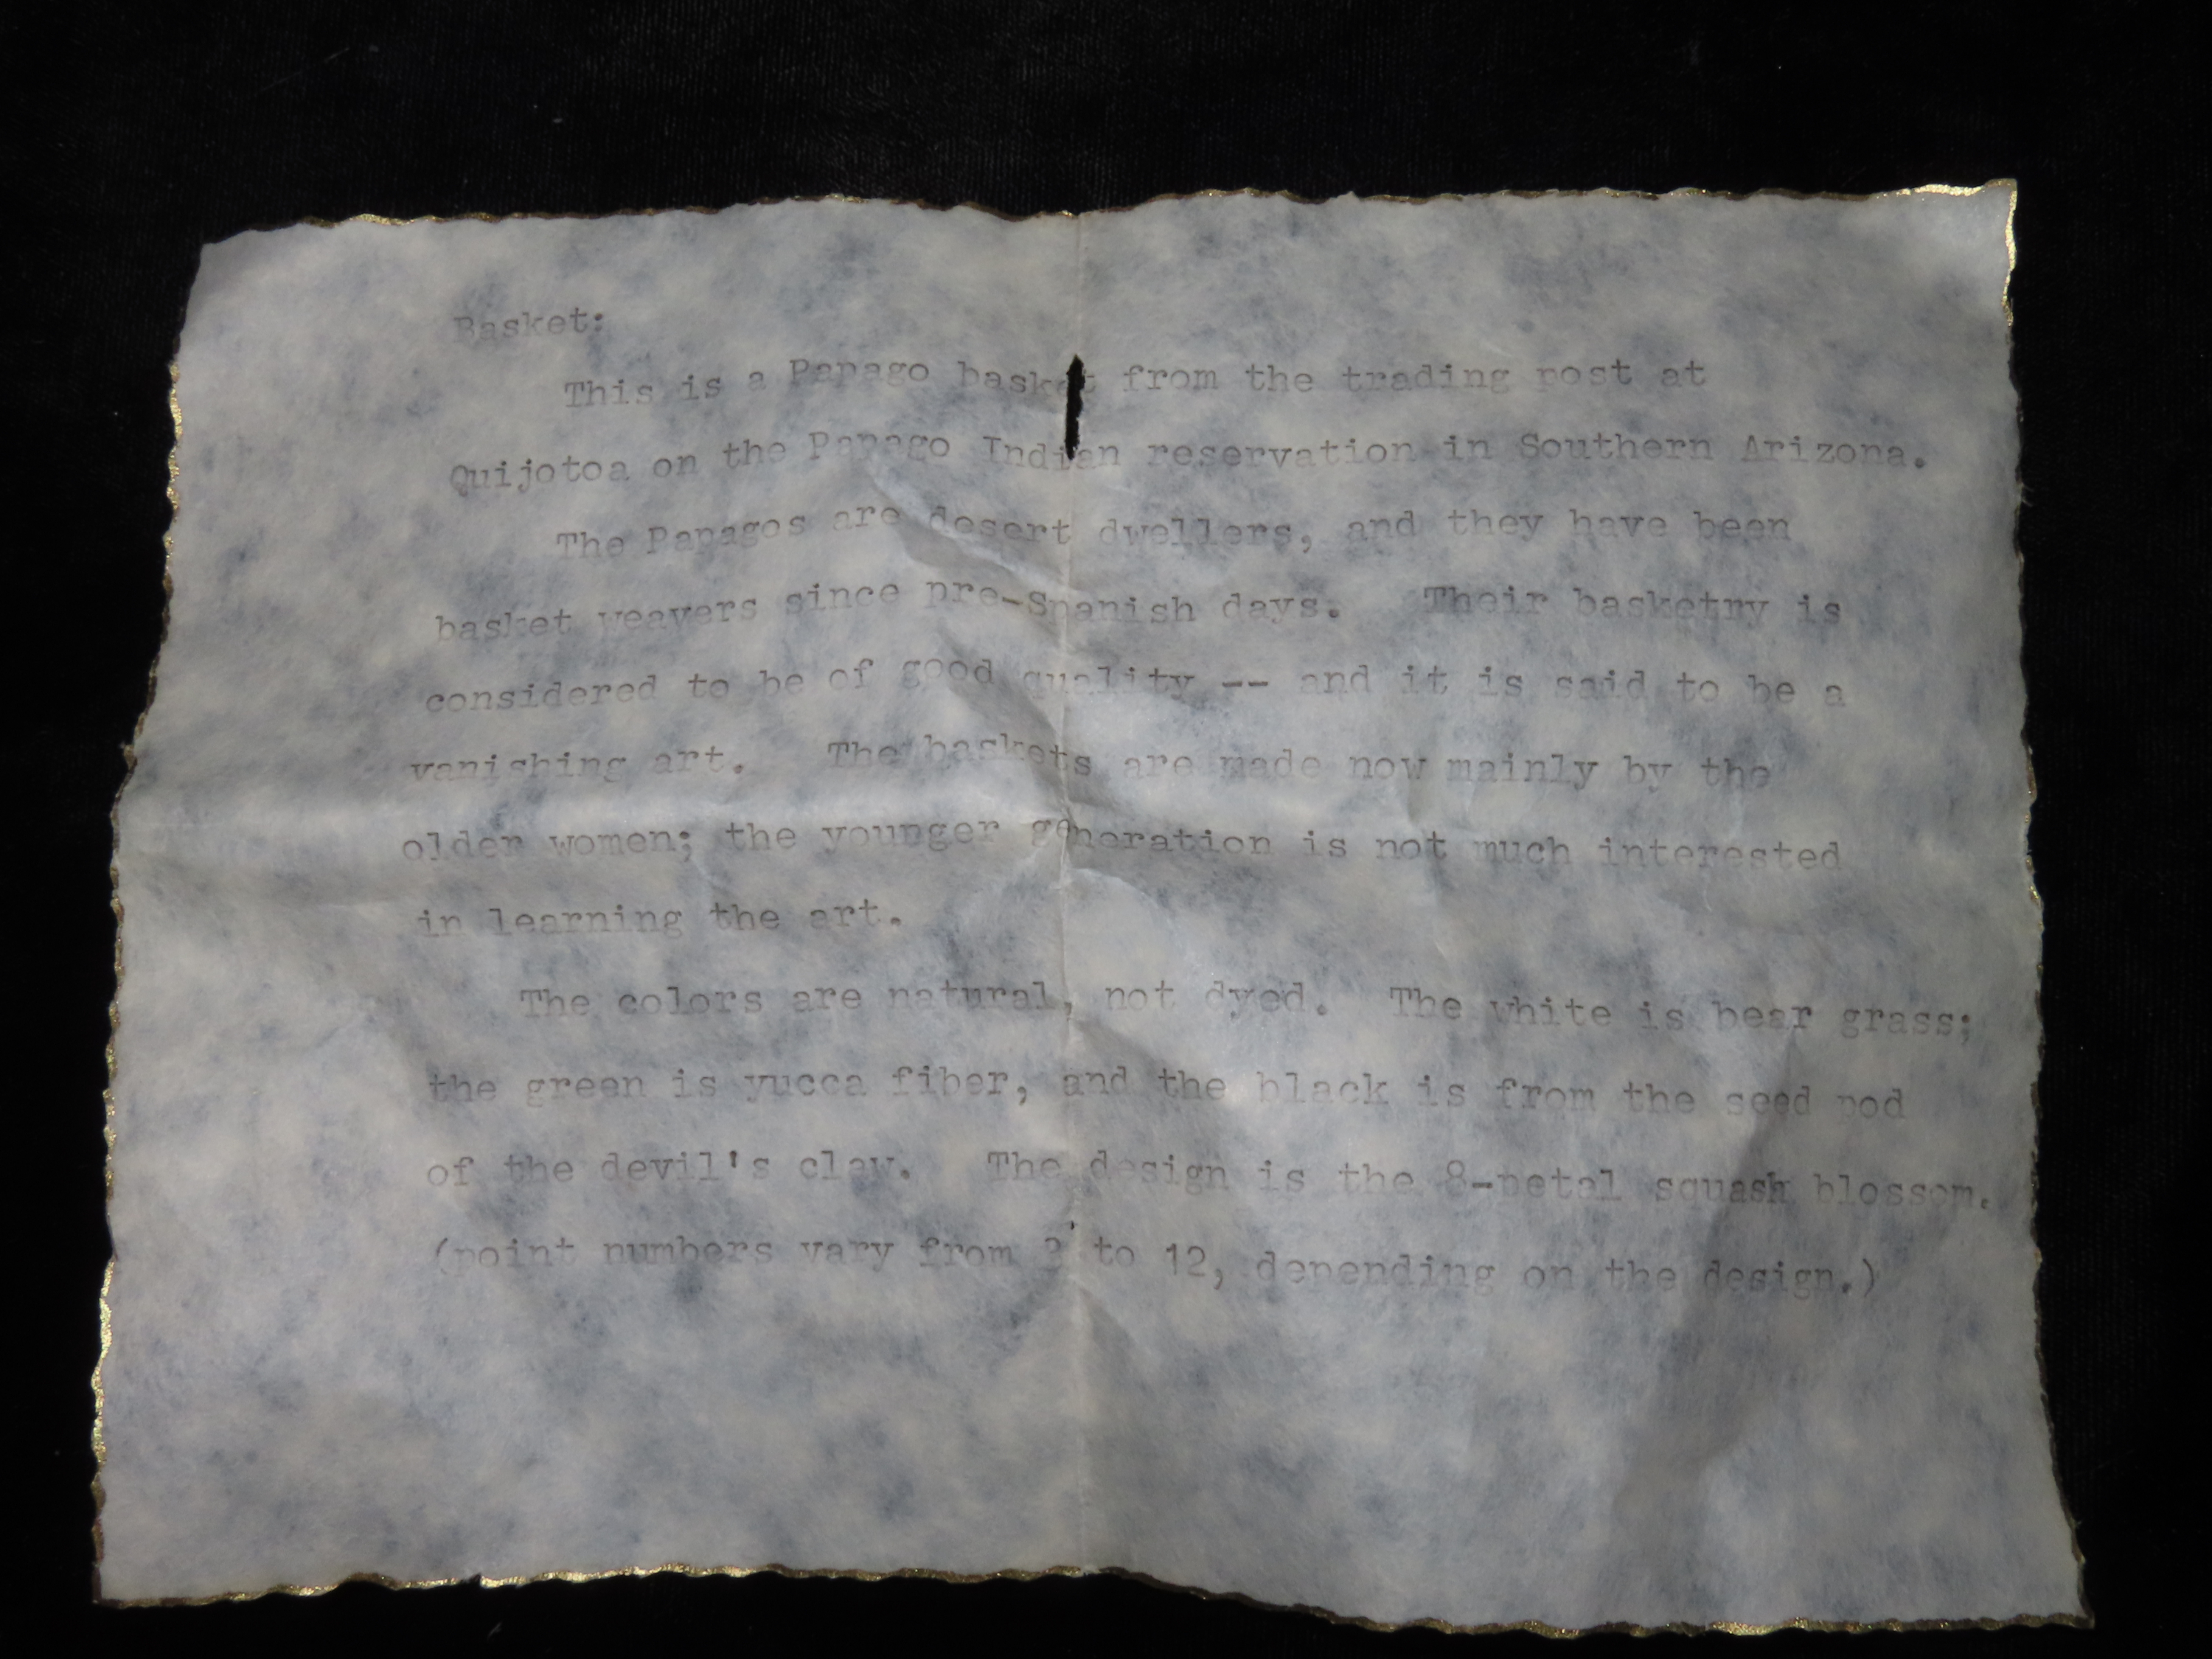 Basket:
This is a Papago basket from the trading post at
Quijotoa on the Papago Indian reservation in Southern Arizona.
The Papagos are desert dwellers, and they have been
basket weavers since pre-Spanish days. Their basketry is
considered to be of good quality -- and it is said to be a
vanishing art. The baskets are made now mainly by the
older women; the younger generation is not much interested
in learning the art.
The colors are natural, not dyed. The white is bear grass;
the green is yucca fiber, and the black is from the seed pod
of the devil's claw. The design is the 8-petal squash blossom.
(point numbers vary from to 12, depending on the design.)